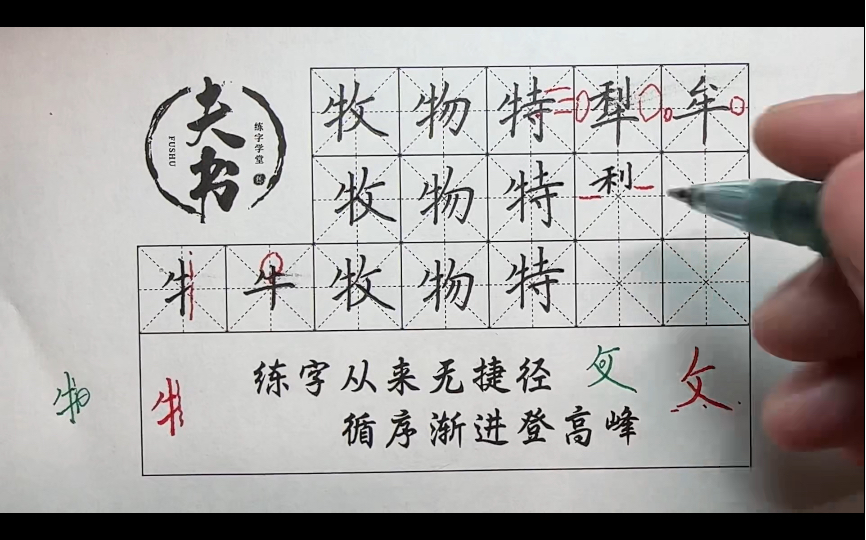 夫书
练字学堂
FUSHU
牧物特犁牟
牧物特利
牜牛牧物特
练字从来无捷径
循序渐进登高峰
攵
攵
物
牜